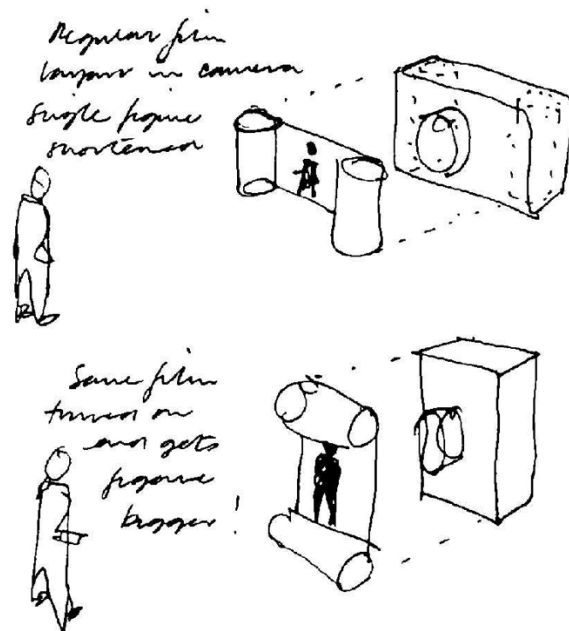 Regular film
layout in camera
single figure
shortened
Same film
turned on
end gets
figure
bigger!